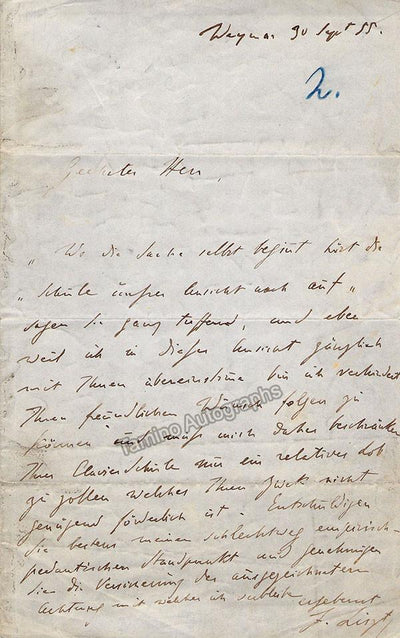 Weymar 30 Sept 55.
2.
Geehrter Herr,
„Wo die Sache selbst beginnt hört die
„Schule unsrer Ansicht nach auf"
sagen Sie ganz treffend, und eben
weil ich in dieser Ansicht gänzlich
mit Ihnen übereinstime bin ich verhindert
Ihren freundlichen Wünsch folgen zu
können und muss mich daher beschränken
Ihrer Clavierschule nur ein relatives Lob
zu zollen welches Ihren Zweck nicht
genügend förderlich ist. Entschuldigen
Sie bestens meinen schlechtweg empirisch-
pedantischen Standpunkt und genehmigen
Sie die Versicherung der ausgezeichneten
Achtung mit welcher ich verbleibe
ergebenst
F. Liszt
Tamino Autographs